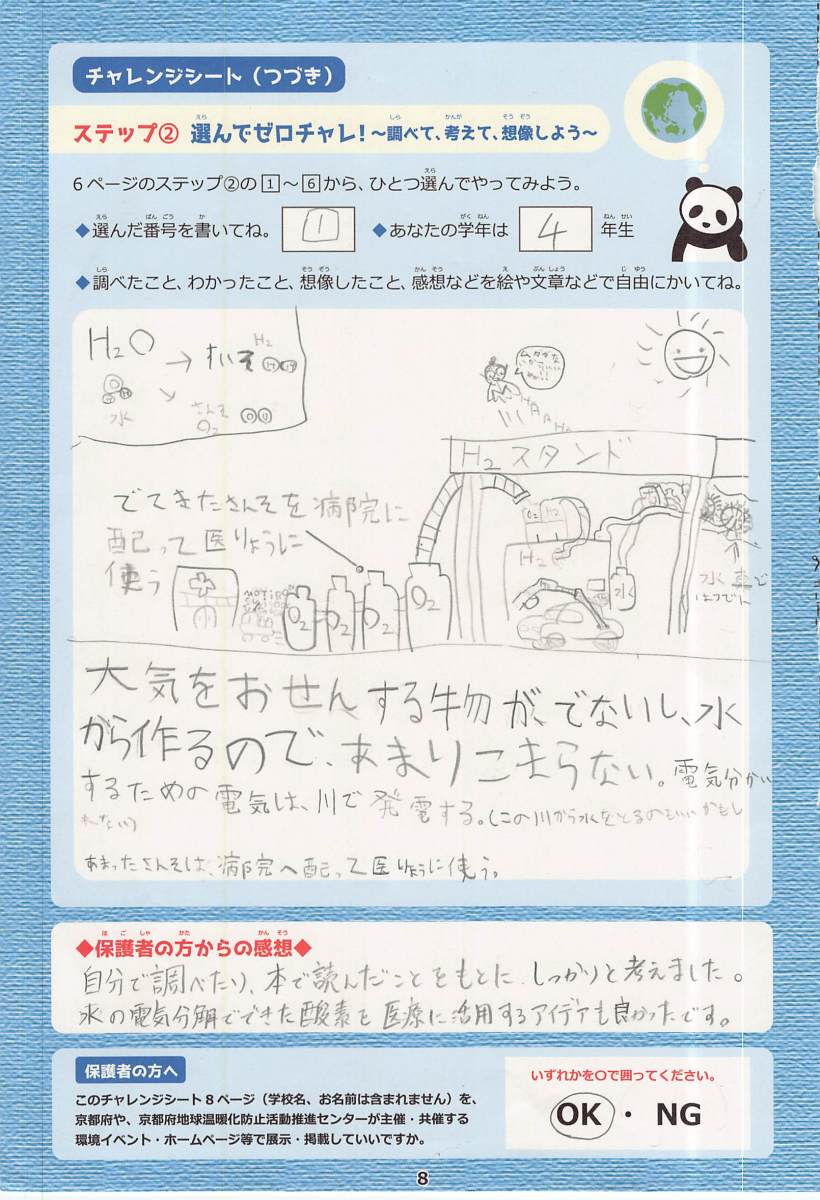 チャレンジシート（つづき）
ステップ② 選んでゼロチャレ！～調べて、考えて、想像しよう～
6ページのステップ②の1～6から、ひとつ選んでやってみよう。
◆選んだ番号を書いてね。 1 ◆あなたの学年は 4 年生
◆調べたこと、わかったこと、想像したこと、感想などを絵や文章などで自由にかいてね。
H2O
→ すいそ H2
水
さんそ O2
H2スタンド
でてきたさんそを病院に
配って医りょうに
使う
O2 O2 O2 O2
O2 H2
H2
水
水車で
はつでん
大気をおせんする物が、でないし、水
から作るので、あまりこまらない。電気分かい
するための電気は、川で発電する。(この川から水をとるのもいいかもし
れない)
あまったさんそは、病院へ配って医りょうに使う。
◆保護者の方からの感想◆
自分で調べたり、本で読んだことをもとに、しっかりと考えました。
水の電気分解でできた酸素を医療に活用するアイデアも良かったです。
保護者の方へ
このチャレンジシート8ページ（学校名、お名前は含まれません）を、
京都府や、京都府地球温暖化防止活動推進センターが主催・共催する
環境イベント・ホームページ等で展示・掲載していいですか。
いずれかを○で囲ってください。
OK ・ NG
8